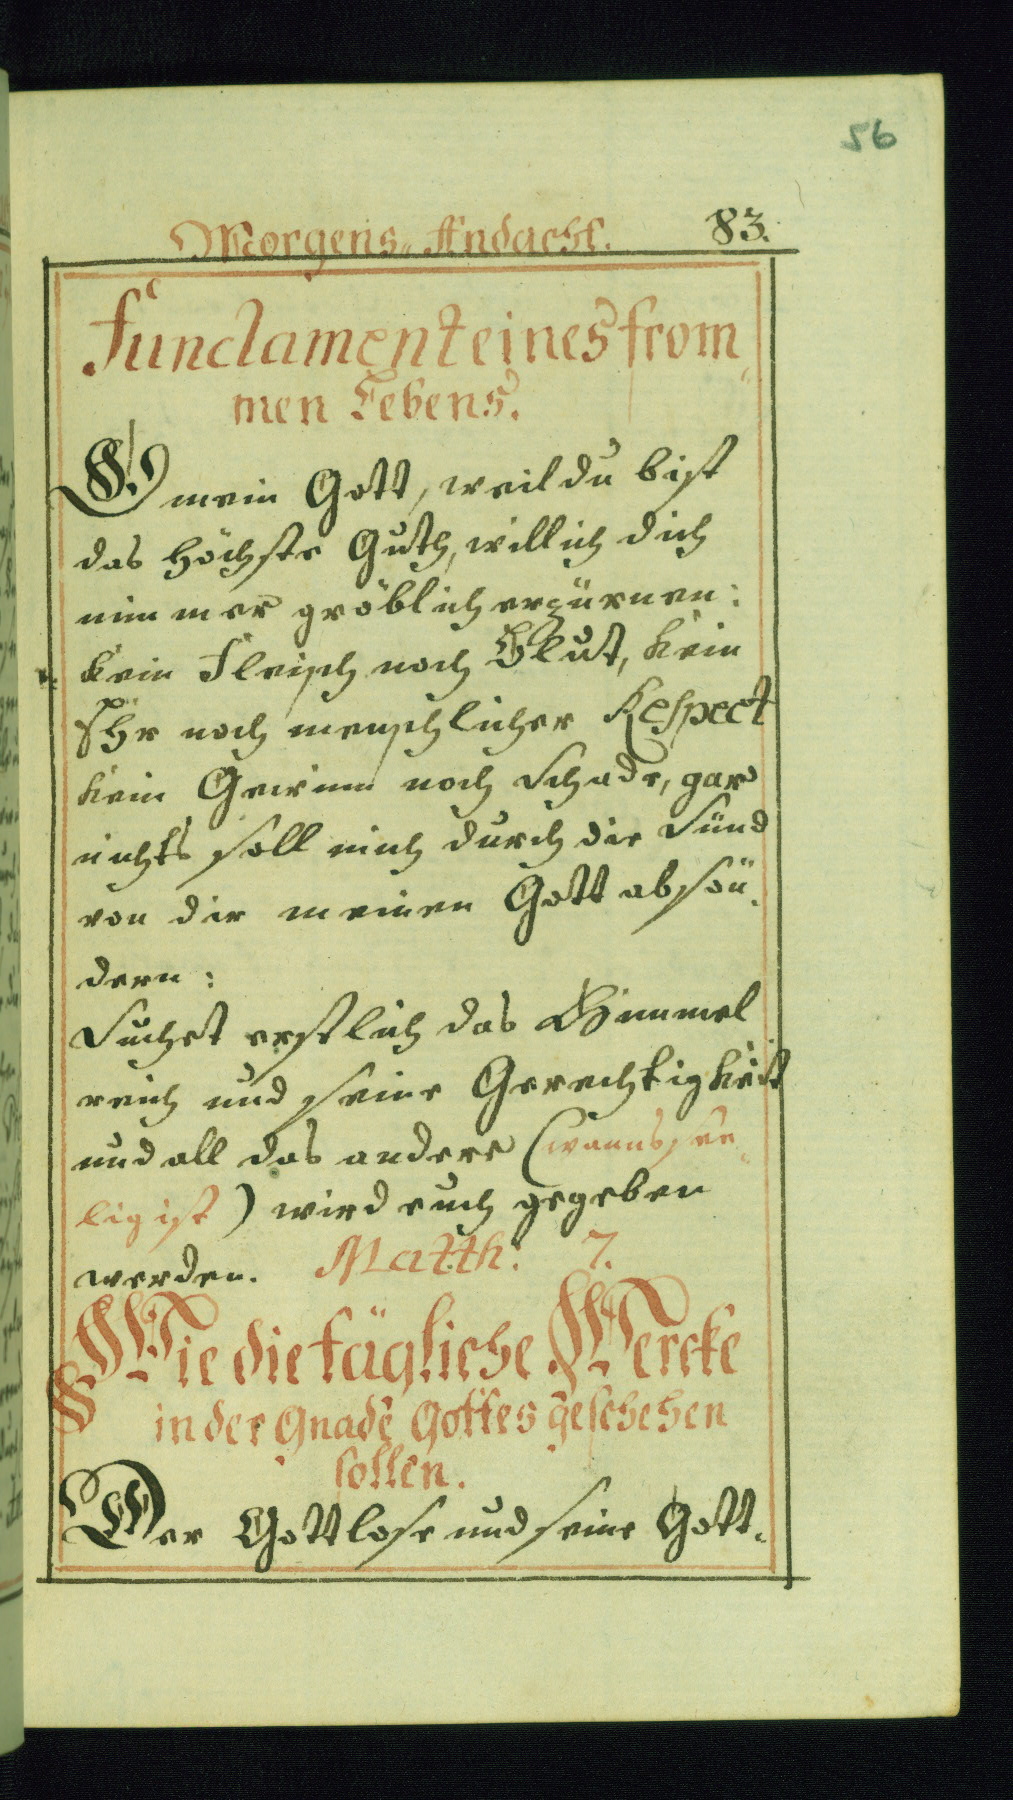 56
Morgens„ Andacht. 83.
Fundament eines from„
men Lebens.
O mein Gott, weil du bist
das höchste Guth, will ich dich
nimmer gröblich erzürnen:
kein Fleisch noch Blut, kein
Ehr noch menschlicher Respect
kein Gewinn noch Schade, gar
nichts soll mich durch die Sünd
von dir meinen Gott absön„
dern:
Suchet erstlich das Himmel
reich und seine Gerechtigkeit
und all das andere (wanns see„
lig ist) wird euch gegeben
werden. Matth: 7.
Wie die tägliche Wercke
in der Gnade Gottes geschehen
sollen.
Der Gottlose und seine Gott„